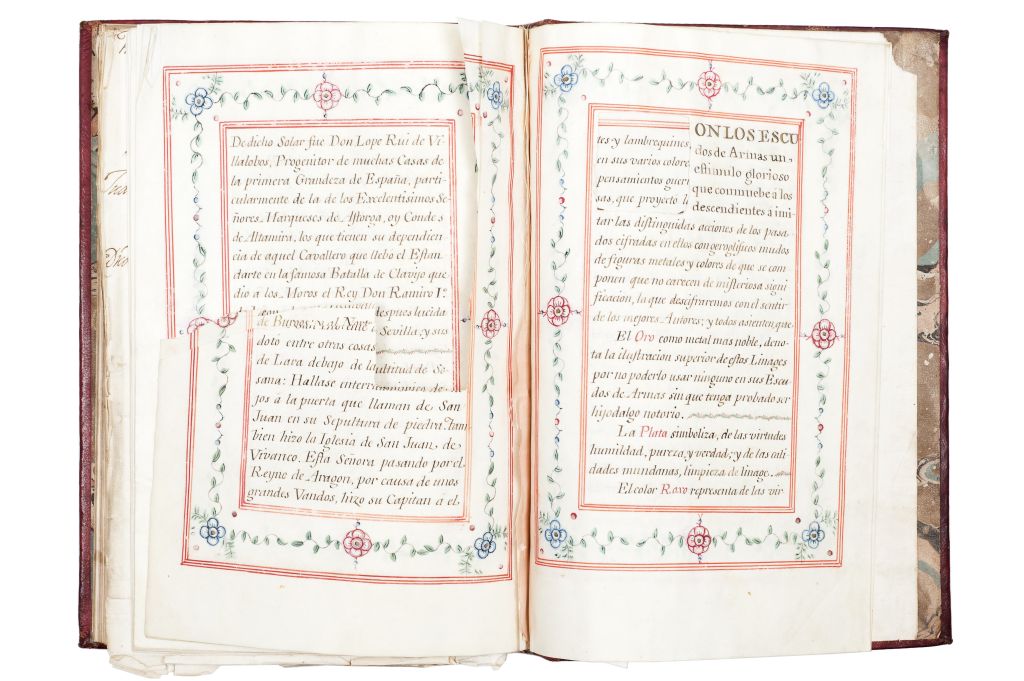 De dicho Solar fue Don Lope Rui de Vi-
llalobos, Progenitor de muchas Casas de
la primera Grandeza de España, parti-
cularmente de la de los Excelentisimos Se-
ñores Marqueses de Astorga, oy Condes
de Altamira, los que tienen su dependien
cia de aquel Cavallero que llebo el Estan
darte en la famosa Batalla de Clavijo que
dio a los Moros el Rey Don Ramiro I.º
despues lucida
de Burgos
Sevilla; y sus
doto entre otras cosas
de Lara debajo de la
ultitud de So-
sana: Hallase
jos â la puerta que llaman de San
Juan en su Sepultura de piedra. Tam
bien hizo la Iglesia de San Juan, de
Vivanco. Esta Señora pasando por el
Reyne de Aragon, por causa de unos
grandes Vandos, hizo su Capitan â el
tes y lambrequines,
en sus varios colore
pensamientos guer
sas, que proyectò l
ON LOS ESCU
dos de Armas un
estimulo glorioso
que conmuebe â los
descendientes â imi
tar las distinguidas acciones de los pasa-
dos cifradas en ellos con geroglificos mudos
de figuras metales y colores de que se com-
ponen que no carecen de misteriosa signi
ficacion, la que descifraremos con el sentir
de los mejores Autores; y todos asienten que
El Oro como metal mas noble, deno-
ta la ilustracion superior de estos Linages
por no poderlo usar ninguno en sus Escu-
dos de Armas sin que tenga probado ser
hijodalgo notorio.
La Plata simboliza, de las virtudes
humildad, pureza y verdad; y de las cali
dades mundanas, limpieza de linage.
El color Roxo representa de las vir